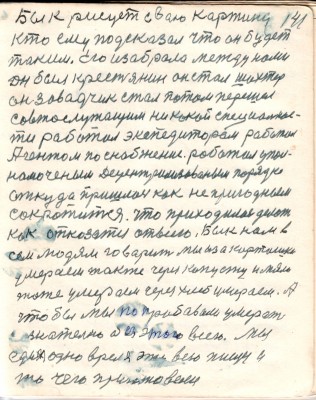 Бык рисует свою картину 141
кто ему подсказал что он будет
таким. Его избрала между нами
он был крестянин он стал шихтер
он завадчик стал потом перешол
совтослутащим никокой специалнос-
ти работал экспедиторам работал
Агентом по снабжение. роботал упол-
намоченым Децентрализованым порядке
откуда пришлом как не пригодным
сократится. что приходился дают
как отказати отвсего. Бык нам в
сем людям говарит мы за картошко
умераем также через капусту и мясо
тоже умераем через хлеб умераем. А
что бы мы попробавали умерет
сознателно без этого всего. мы
одно время эти всю пищу и
то чего приготовели